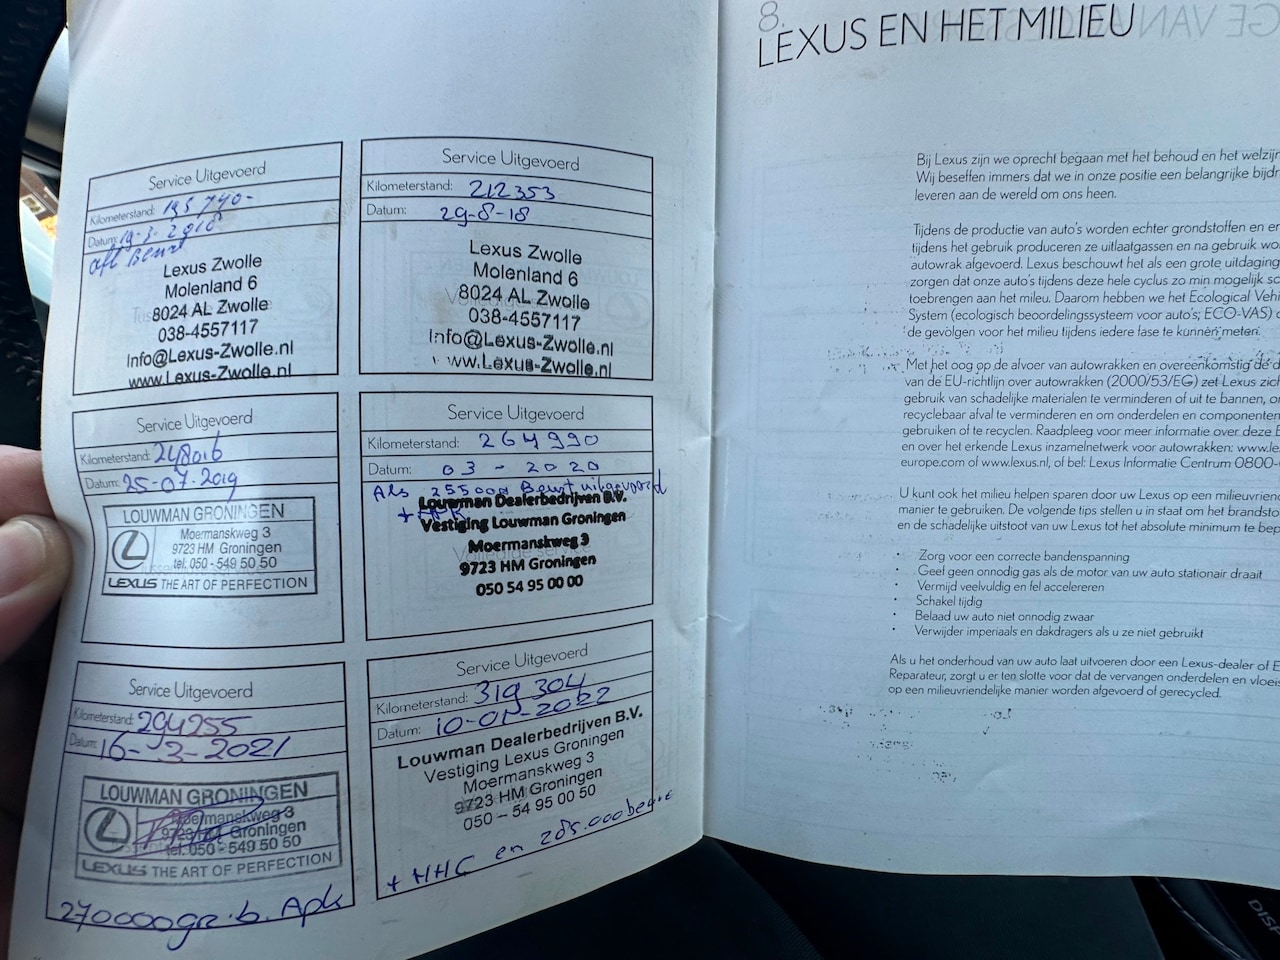 Service Uitgevoerd
Kilometerstand: 195740-
Datum: 19-3-2018
afl Beurt
Lexus Zwolle
Molenland 6
8024 AL Zwolle
038-4557117
Info@Lexus-Zwolle.nl
www.Lexus-Zwolle.nl
Service Uitgevoerd
Kilometerstand: 212353
Datum: 29-8-18
Lexus Zwolle
Molenland 6
8024 AL Zwolle
038-4557117
Info@Lexus-Zwolle.nl
www.Lexus-Zwolle.nl
Service Uitgevoerd
Kilometerstand:
Datum: 25-07-2019
LOUWMAN GRONINGEN
Moermanskweg 3
9723 HM Groningen
tel. 050 - 549 50 50
LEXUS THE ART OF PERFECTION
Service Uitgevoerd
Kilometerstand: 264990
Datum: 03 - 2020
Als 255000 Beurt uitgevoerd
+ APK
Louwman Dealerbedrijven B.V.
Vestiging Louwman Groningen
Moermanskweg 3
9723 HM Groningen
050 54 95 00 00
Service Uitgevoerd
Kilometerstand: 294255
Datum: 16-3-2021
LOUWMAN GRONINGEN
Moermanskweg 3
9723 HM Groningen
tel. 050 - 549 50 50
LEXUS THE ART OF PERFECTION
270000 gr. b. Apk
Service Uitgevoerd
Kilometerstand: 319304
Datum: 10-01-2022
Louwman Dealerbedrijven B.V.
Vestiging Lexus Groningen
Moermanskweg 3
9723 HM Groningen
050 - 54 95 00 50
+ HHC en 285.000 beurt
8.
LEXUS EN HET MILIEU
Bij Lexus zijn we oprecht begaan met het behoud en het welzijn
Wij beseffen immers dat we in onze positie een belangrijke bijdr
leveren aan de wereld om ons heen.
Tijdens de productie van auto's worden echter grondstoffen en er
tijdens het gebruik produceren ze uitlaatgassen en na gebruik wo
autowrak afgevoerd. Lexus beschouwt het als een grote uitdaging
zorgen dat onze auto's tijdens deze hele cyclus zo min mogelijk sc
toebrengen aan het mileu. Daarom hebben we het Ecological Vehi
System (ecologisch beoordelingssysteem voor auto's; ECO-VAS) o
de gevolgen voor het milieu tijdens iedere fase te kunnen meten.
Met het oog op de alvoer van autowrakken en overeenkomstig de d
van de EU-richtlijn over autowrakken (2000/53/EG) zet Lexus zich
gebruik van schadelijke materialen te verminderen of uit te bannen, o
recyclebaar afval te verminderen en om onderdelen en componenten
gebruiken of te recyclen. Raadpleeg voor meer informatie over deze E
en over het erkende Lexus inzamelnetwerk voor autowrakken: www.le
europe.com of www.lexus.nl, of bel: Lexus Informatie Centrum 0800-
U kunt ook het milieu helpen sparen door uw Lexus op een milieuvriend
manier te gebruiken. De volgende tips stellen u in staat om het brandsto
en de schadelijke uitstoot van uw Lexus tot het absolute minimum te bep
• Zorg voor een correcte bandenspanning
• Geef geen onnodig gas als de motor van uw auto stationair draait
• Vermijd veelvuldig en fel accelereren
• Schakel tijdig
• Belaad uw auto niet onnodig zwaar
• Verwijder imperiaals en dakdragers als u ze niet gebruikt
Als u het onderhoud van uw auto laat uitvoeren door een Lexus-dealer of E
Reparateur, zorgt u er ten slotte voor dat de vervangen onderdelen en vloeis
op een milieuvriendelijke manier worden afgevoerd of gerecycled.